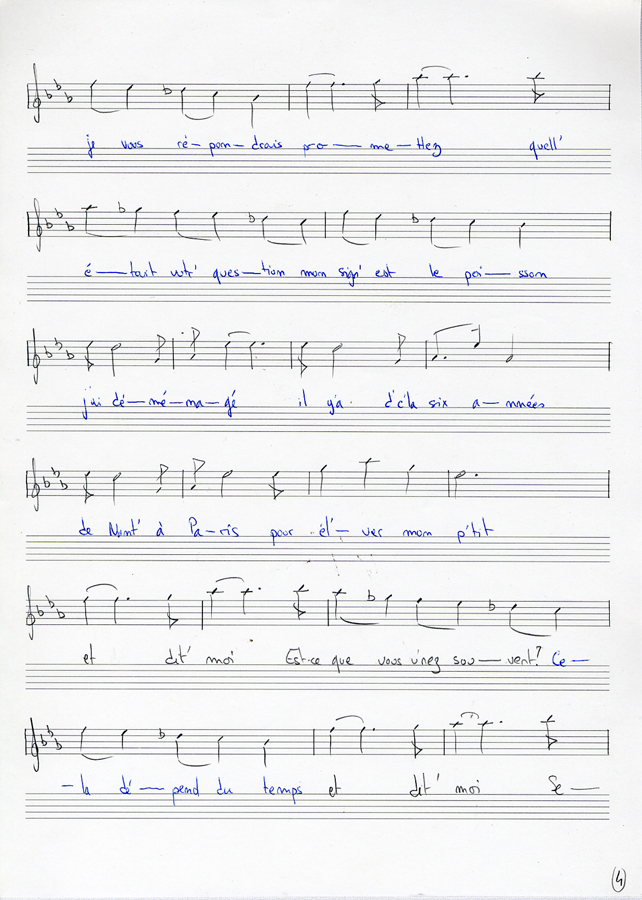 je vous ré-pon-drais pro-me-ttez quell'
é-tait votr' ques-tion mon sign' est le poi-sson
j'ai dé-mé-na-gé il y'a d'c'la six a-nnées
de Nant' à Pa-ris pour él'-ver mon p'tit
et dit' moi Est-ce que vous v'nez sou-vent? Ce-
-la dé-pend du temps et dit' moi Se-
4